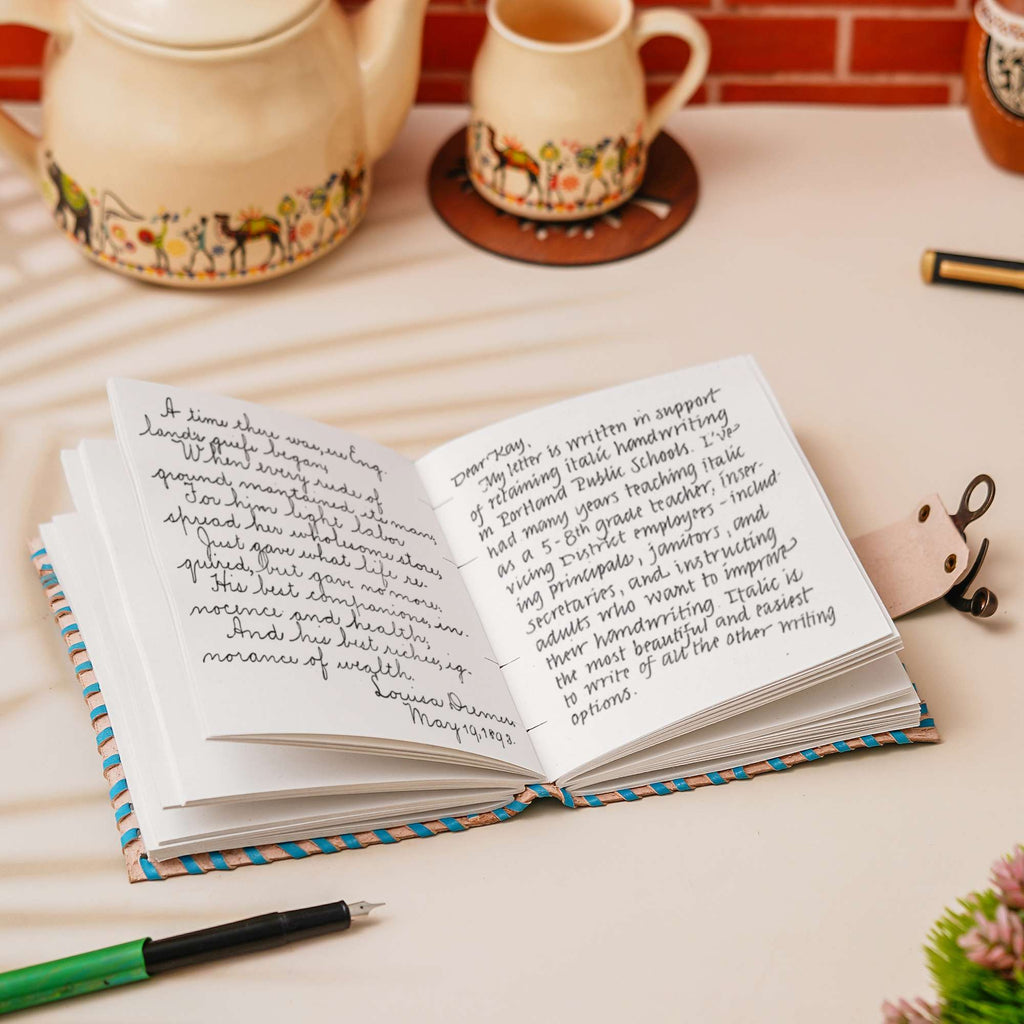 A time there was, ere Eng.
land's griefs began,
When every rude of
ground mantained its man,
For him light labor
spread her wholesome stores,
Just gave what life re.
quired, but gave no more,
His best companions, in.
nocence and health,
And his best riches, ig.
norance of wealth.
Louisa
May 19, 1893.
Dear Kay,
My letter is written in support
of retaining italic handwriting
in Portland Public Schools. I've
had many years teaching italic
as a 5-8th grade teacher, inser-
vicing District employers - includ-
ing principals, janitors, and
secretaries, and instructing
adults who want to improve
their handwriting. Italic is
the most beautiful and easiest
to write of all the other writing
options.